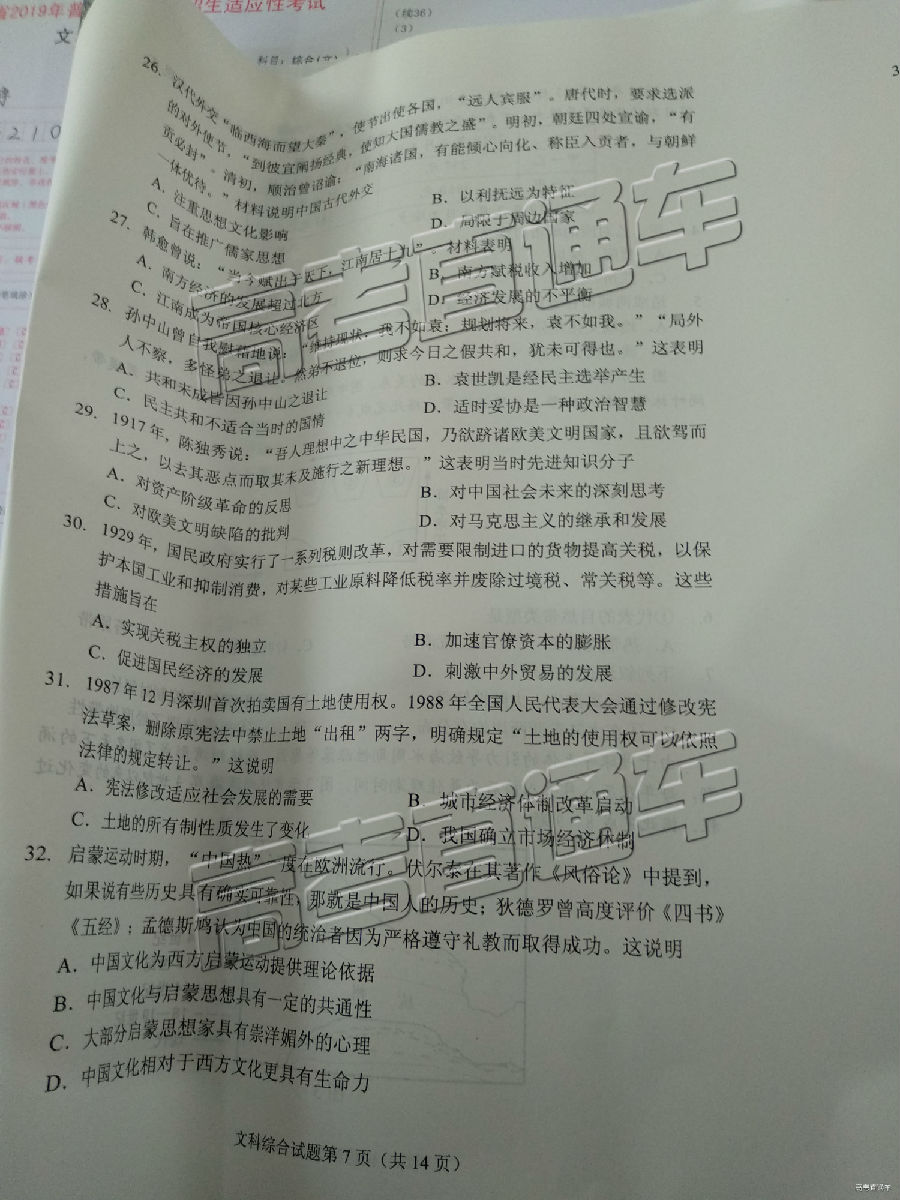 省2019年普
招生适应性考试
文
科目：综合(文)
(续36)
(3)
3
210
26. 汉代外交“临西海而望大秦”，使节出使各国，“远人宾服”。唐代时，要求选派
的对外使节，“到彼宜阐扬经典，使知大国儒教之盛”。明初，朝廷四处宣谕，“有
贡必封”。清初，顺治曾诏谕：“南海诸国，有能倾心向化、称臣入贡者，与朝鲜
一体优待。”材料说明中国古代外交
A．注重思想文化影响 B．以利抚远为特征
C．旨在推广儒家思想 D．局限于周边国家
27. 韩愈曾说：“当今赋出于天下，江南居十九”。材料表明
A．南方经济的发展超过北方 B．南方赋税收入增加
C．江南成为帝国核心经济区 D．经济发展的不平衡
28. 孙中山曾自我慰藉地说：“维持现状，我不如袁；规划将来，袁不如我。”“局外
人不察，多怪弟之退让。然弟不退位，则求今日之假共和，犹未可得也。”这表明
A．共和未成皆因孙中山之退让 B．袁世凯是经民主选举产生
C．民主共和不适合当时的国情 D．适时妥协是一种政治智慧
29. 1917年，陈独秀说：“吾人理想中之中华民国，乃欲跻诸欧美文明国家，且欲驾而
上之，以去其恶点而取其未及施行之新理想。”这表明当时先进知识分子
A．对资产阶级革命的反思 B．对中国社会未来的深刻思考
C．对欧美文明缺陷的批判 D．对马克思主义的继承和发展
30. 1929年，国民政府实行了一系列税则改革，对需要限制进口的货物提高关税，以保
护本国工业和抑制消费，对某些工业原料降低税率并废除过境税、常关税等。这些
措施旨在
A．实现关税主权的独立 B．加速官僚资本的膨胀
C．促进国民经济的发展 D．刺激中外贸易的发展
31. 1987年12月深圳首次拍卖国有土地使用权。1988年全国人民代表大会通过修改宪
法草案，删除原宪法中禁止土地“出租”两字，明确规定“土地的使用权可以依照
法律的规定转让。”这说明
A．宪法修改适应社会发展的需要 B．城市经济体制改革启动
C．土地的所有制性质发生了变化 D．我国确立市场经济体制
32. 启蒙运动时期，“中国热”一度在欧洲流行。伏尔泰在其著作《风俗论》中提到，
如果说有些历史具有确实可靠性，那就是中国人的历史；狄德罗曾高度评价《四书》
《五经》；孟德斯鸠认为中国的统治者因为严格遵守礼教而取得成功。这说明
A．中国文化为西方启蒙运动提供理论依据
B．中国文化与启蒙思想具有一定的共通性
C．大部分启蒙思想家具有崇洋媚外的心理
D．中国文化相对于西方文化更具有生命力
文科综合试题第7页（共14页）
高考直通车
高考直通车
高考直通车